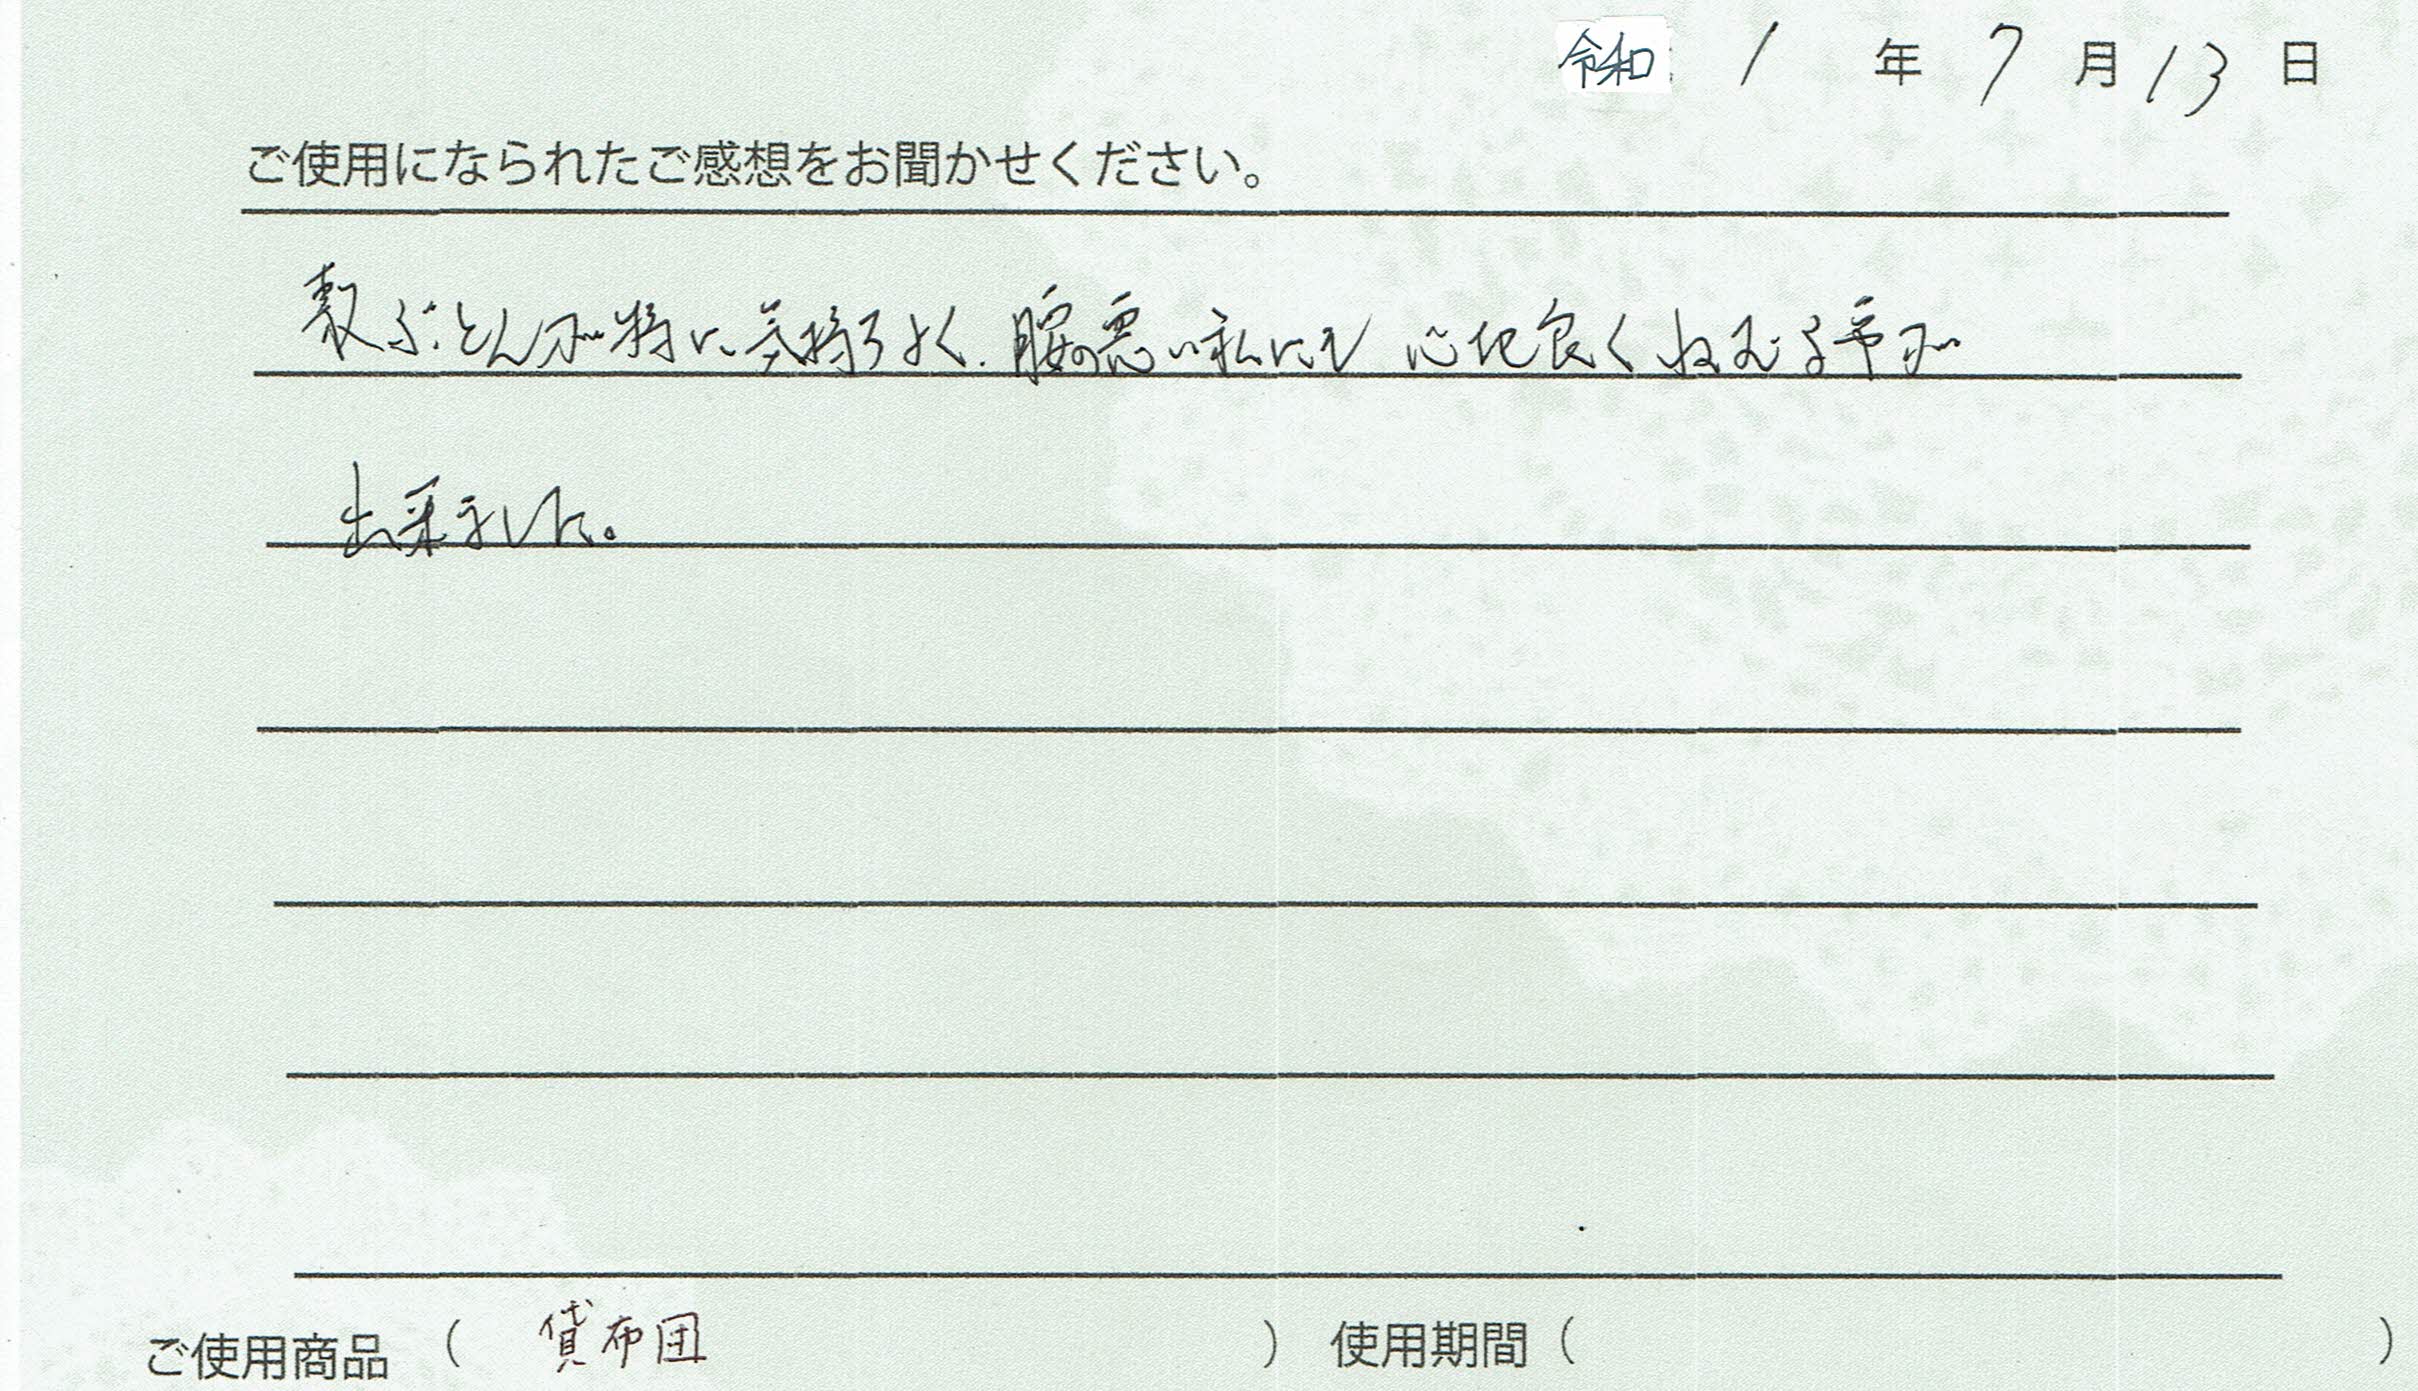 令和 1 年 7 月 13 日
ご使用になられたご感想をお聞かせください。
敷ぶとんが特に気持ちよく、腰の悪い私にも心地良くねむる事が
出来ました。
ご使用商品 ( 貸布団 ) 使用期間 ( )